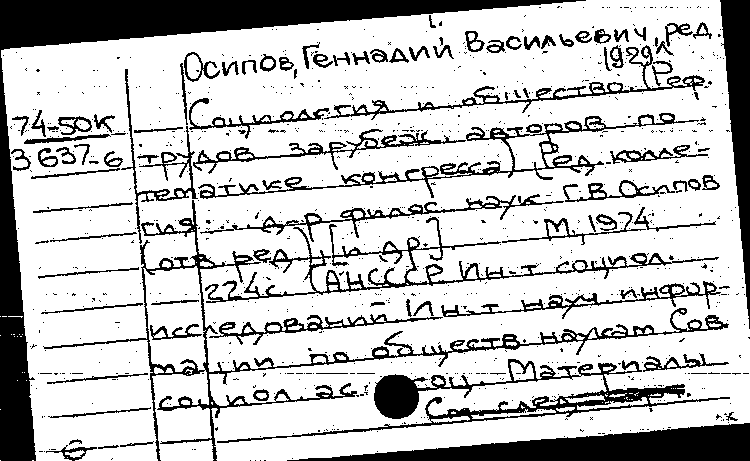 Осипов, Геннадий Васильевич, ред.
1929
74-50К
3637-6
Социология и общество. (Реф.
трудов зарубеж. авторов по
тематике конгресса) (Ред. колле-
гия: ... д-р филос. наук Г.В. Осипов
(отв. ред.) [и др.]. М., 1974.
224с. (АН СССР Ин-т социол.
исследований. Ин-т науч. инфор-
мации по обществ. наукам. Сов.
социол. ас соц. Материалы
См. след.
6